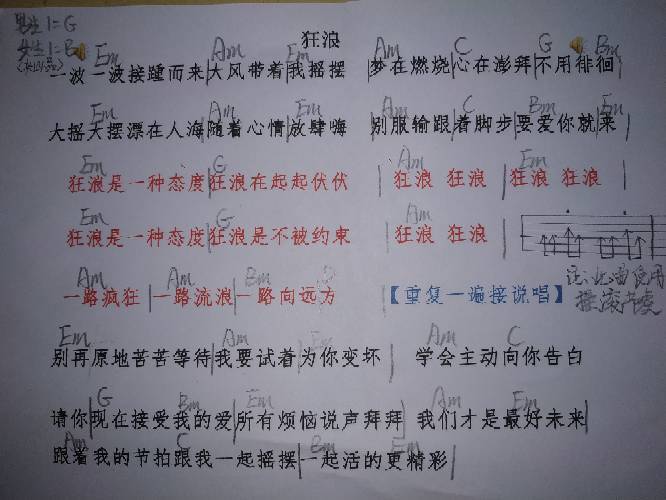 男生1=G
狂浪
女生1=B
Em Am Em Am C G Bm
一波一波接踵而来|大风带着|我摇摆 梦在燃烧|心在澎拜|不用徘徊|
Em Am Em Am C Bm Em
大摇大摆漂在人海|随着心情|放肆嗨 别服输跟|着脚步|要爱你就|来
Em G Am Em
狂浪是一种态度|狂浪在起起伏伏 |狂浪 狂浪 |狂浪 狂浪 |
Em G Am
狂浪是一种态度|狂浪是不被约束 |狂浪 狂浪 |
Am Am Bm
一路疯狂 |一路流浪|一路向远方 【重复一遍接说唱】
注:此曲使用
摇滚节奏
Em Am Em Am C
别再原地苦苦等待|我要试着|为你变坏| 学会主动|向你告白
G Bm Em Am Em
请你|现在接受|我的爱|所有烦恼|说声拜拜| 我们才是|最好未来|
Am C Bm Em
跟着我的节拍|跟我一起摇摆|一起活的|更精彩|